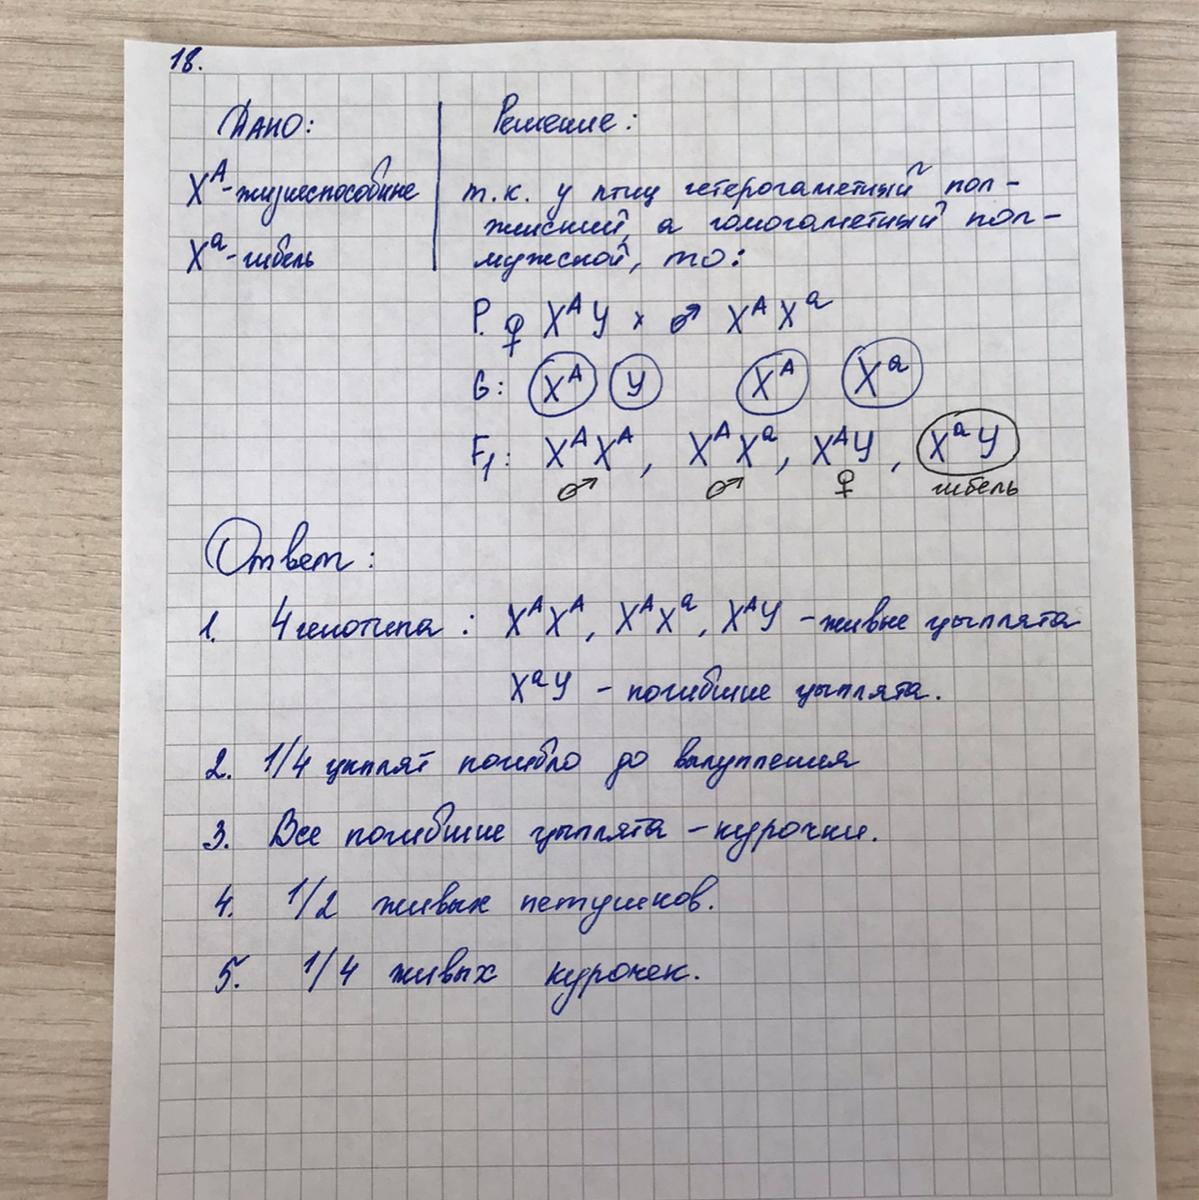 18.
Дано:
Решение:
X^A - жизнеспособные
X^a - гибель
т.к. у птиц гетерогаметный пол -
женский, а гомогаметный пол -
мужской, то:
P. ♀ X^A У × ♂ X^A X^a
G: X^A У X^A X^a
F₁: X^A X^A, X^A X^a, X^A У, X^a У
♂ ♂ ♀ гибель
Ответ:
1. 4 генотипа: X^A X^A, X^A X^a, X^A У - живые цыплята
X^a У - погибшие цыплята.
2. 1/4 цыплят погибло до вылупления
3. Все погибшие цыплята - курочки.
4. 1/2 живых петушков.
5. 1/4 живых курочек.